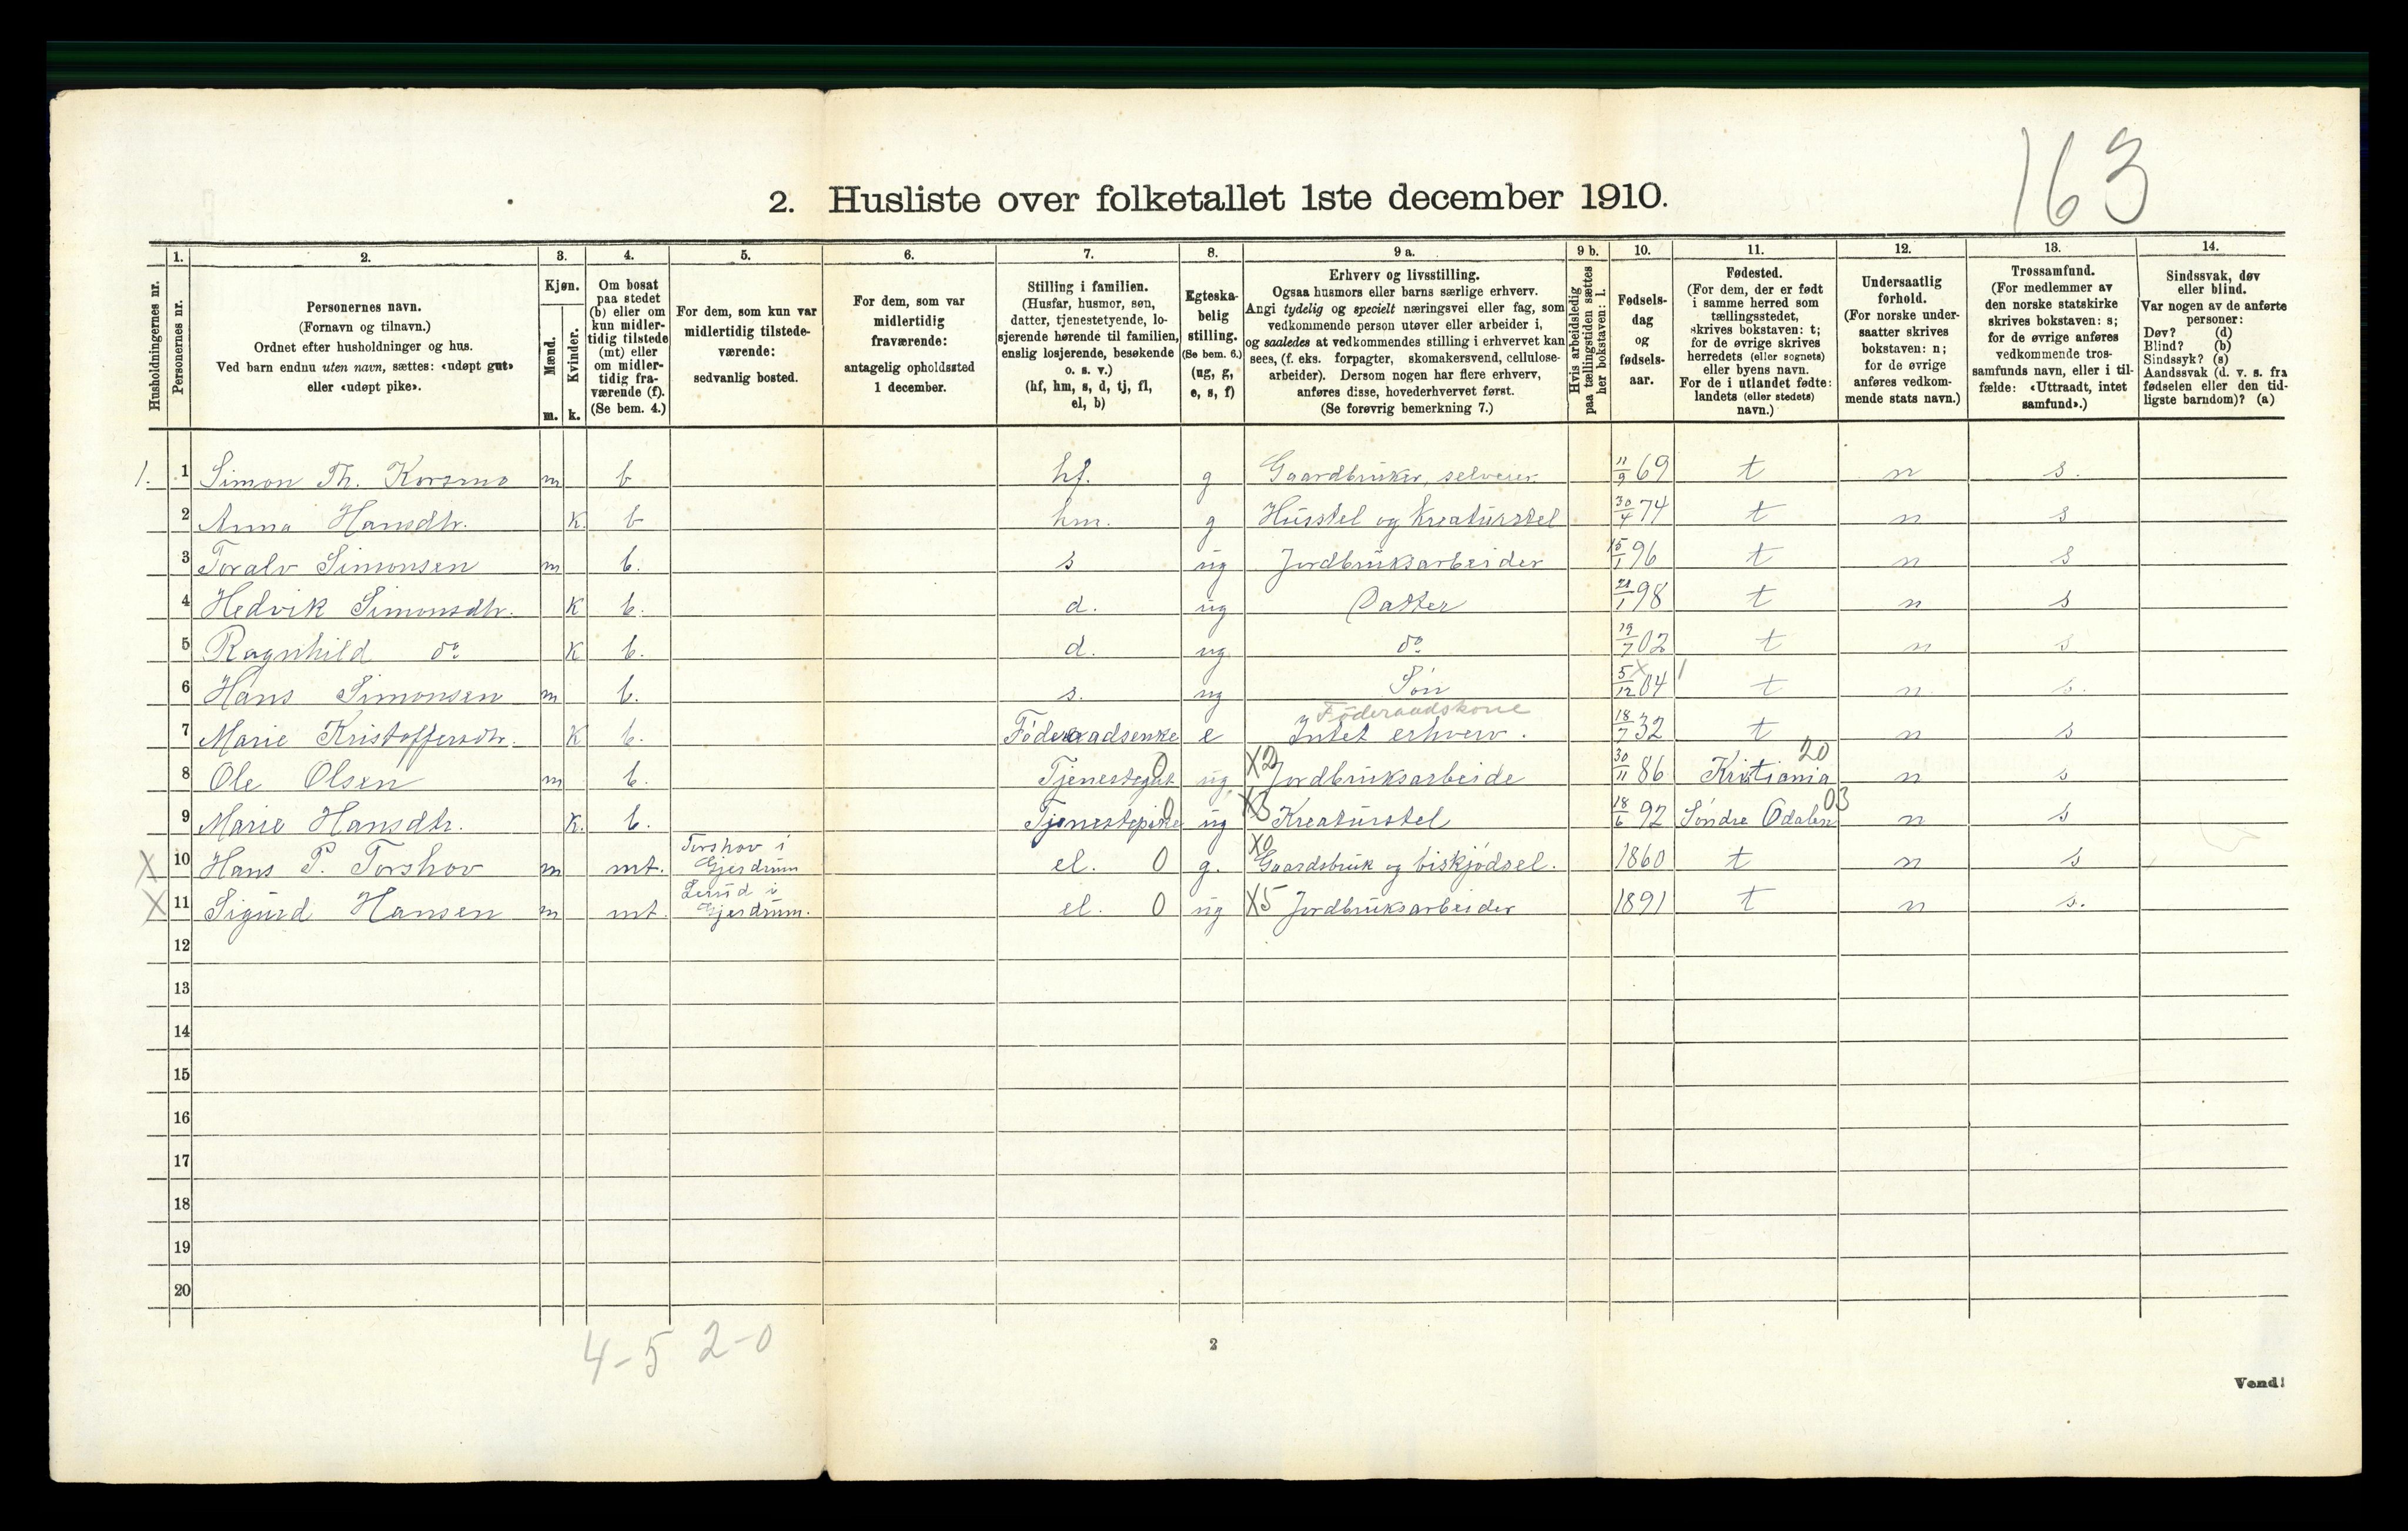 163
2. Husliste over folketallet 1ste december 1910.
Husholdningernes nr.
1. Personernes nr.
2. Personernes navn.
(Fornavn og tilnavn.)
Ordnet efter husholdninger og hus.
Ved barn endnu uten navn, sættes: «udøpt gut»
eller «udøpt pike».
3. Kjøn.
Mænd. m.
Kvinder. k.
4. Om bosat
paa stedet
(b) eller om
kun midler-
tidig tilstede
(mt) eller
om midler-
tidig fra-
værende (f).
(Se bem. 4.)
5. For dem, som kun var
midlertidig tilstede-
værende:
sedvanlig bosted.
6. For dem, som var
midlertidig
fraværende:
antagelig opholdssted
1 december.
7. Stilling i familien.
(Husfar, husmor, søn,
datter, tjenestetyende, lo-
sjerende hørende til familien,
enslig losjerende, besøkende
o. s. v.)
(hf, hm, s, d, tj, fl,
el, b)
8. Egteska-
belig
stilling.
(Se bem. 6.)
(ug, g,
e, s, f)
9 a. Erhverv og livsstilling.
Ogsaa husmors eller barns særlige erhverv.
Angi tydelig og specielt næringsvei eller fag, som
vedkommende person utøver eller arbeider i,
og saaledes at vedkommendes stilling i erhvervet kan
sees, (f. eks. forpagter, skomakersvend, cellulose-
arbeider). Dersom nogen har flere erhverv,
anføres disse, hovederhvervet først.
(Se forøvrig bemerkning 7.)
9 b. Hvis arbeidsledig
paa tællingstiden sættes
her bokstaven: l.
10. Fødsels-
dag
og
fødsels-
aar.
11. Fødested.
(For dem, der er født
i samme herred som
tællingsstedet,
skrives bokstaven: t;
for de øvrige skrives
herredets (eller sognets)
eller byens navn.
For de i utlandet fødte:
landets (eller stedets)
navn.)
12. Undersaatlig
forhold.
(For norske under-
saatter skrives
bokstaven: n;
for de øvrige
anføres vedkom-
mende stats navn.)
13. Trossamfund.
(For medlemmer av
den norske statskirke
skrives bokstaven: s;
for de øvrige anføres
vedkommende tros-
samfunds navn, eller i til-
fælde: «Uttraadt, intet
samfund».)
14. Sindssvak, døv
eller blind.
Var nogen av de anførte
personer:
Døv? (d)
Blind? (b)
Sindssyk? (s)
Aandssvak (d. v. s. fra
fødselen eller den tid-
ligste barndom)? (a)
1. 1 Simon Th. Korsmo m b hf. g Gaardbruker, selveier 11/9 69 t n s.
2 Anna Hansdtr. k. b hm. g Husstel og Kreaturstel 30/4 74 t n s
3 Toralv Simonsen m b. s ug Jordbruksarbeider 15/1 96 t n s
4 Hedvik Simonsdtr. k b. d. ug Datter 21/1 98 t n s
5 Ragnhild do k b. d. ug do 19/7 02 t n s
6 Hans Simonsen m b. s. ug Søn 5/12 04 t n s.
Føderaadskone
7 Marie Kristoffersdtr. k b. Føderaadsenke e Intet erhverv. 18/7 32 t n s
8 Ole Olsen m b. Tjenestegut 0 ug. X2 Jordbruksarbeide 30/11 86 Kristiania 20 n s
9 Marie Hansdtr. k. b. Tjenestepike 0 ug X3 Kreaturstel 18/6 92 Søndre Odalen 03 n s
X 10 Hans P. Torshov m mt. Torshov i Gjerdrum el. 0 g. X0 Gaardsbruk og biskjødsel. 1860 t n s
X 11 Sigurd Hansen m mt. Lerud i Gjerdrum. el. 0 ug X5 Jordbruksarbeider 1891 t n s.
12
13
14
15
16
17
18
19
20
4-5 2-0
2
Vend!